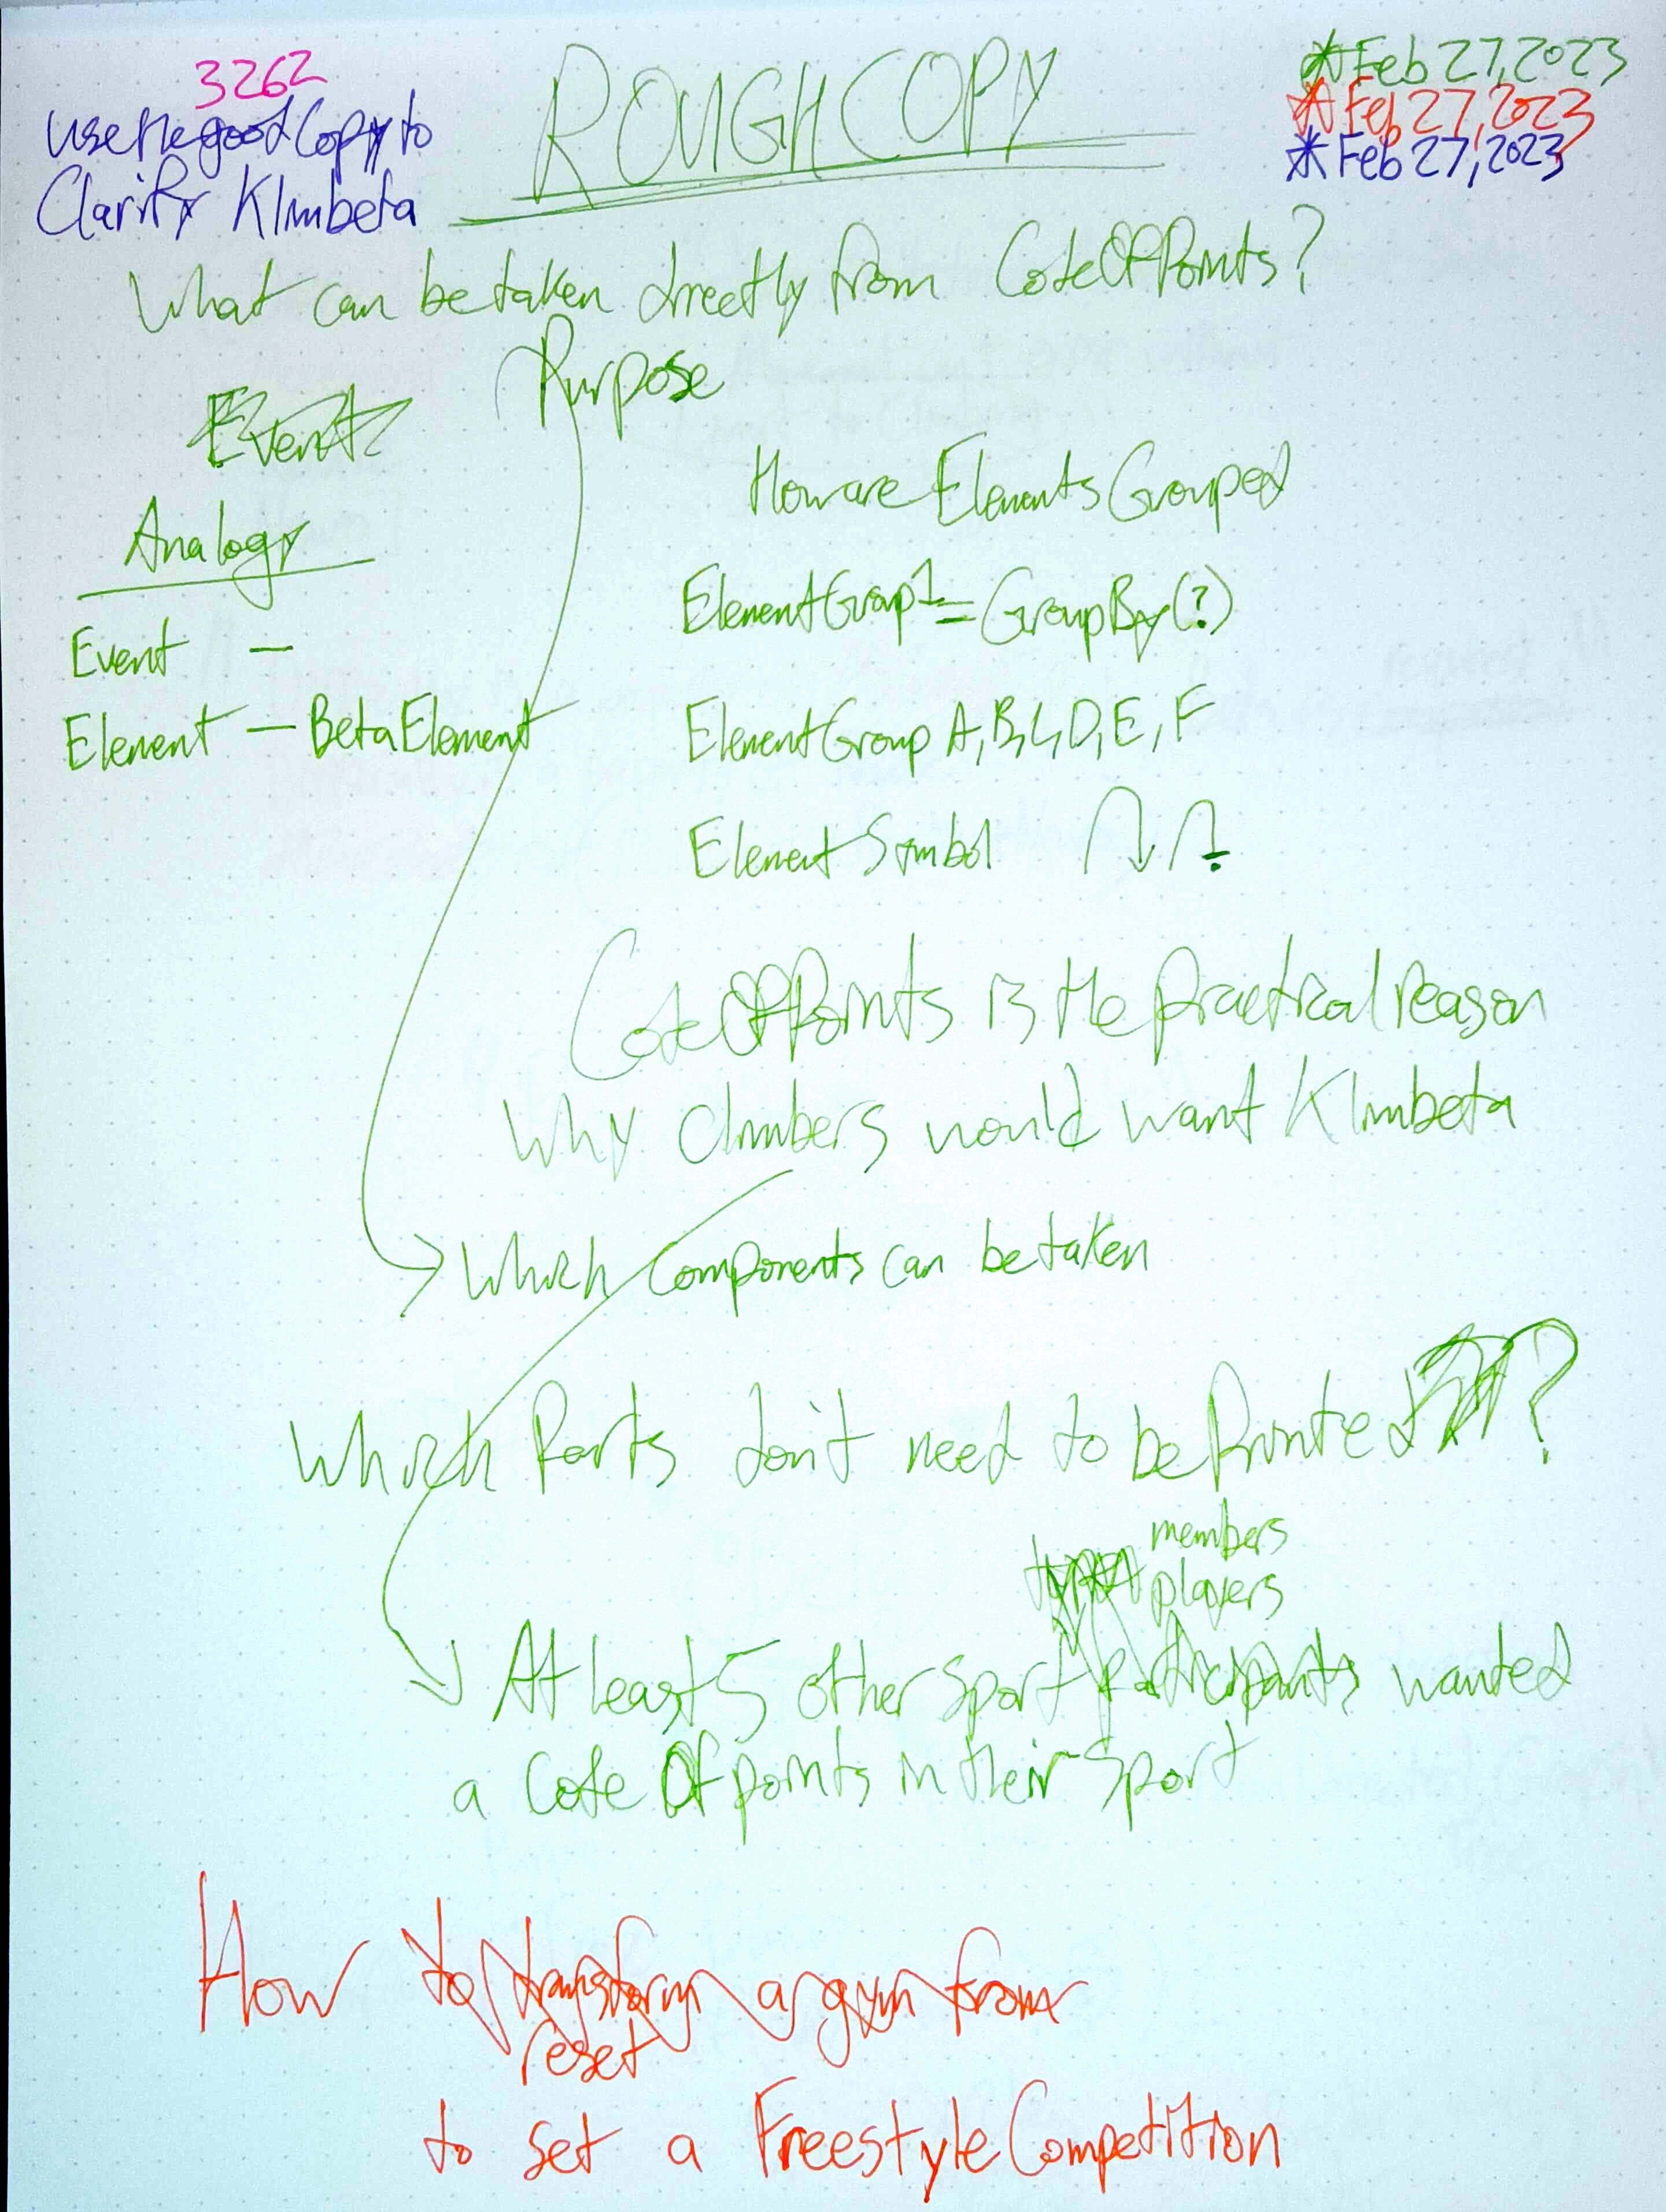 3262
Use the good Copy to
Clarify Klimbeta
ROUGH COPY
Feb 27, 2023
Feb 27, 2023
Feb 27, 2023
What can be taken directly from CodeOfPoints?
Purpose
Event
Analogy
Event —
Element — BetaElement
How are Elements Grouped
ElementGroup1 = GroupBy(?)
ElementGroup A, B, C, D, E, F
Element Symbol
CodeOfPoints is the practical reason
Why climbers would want Klimbeta
Which Components can be taken
Which Parts don't need to be Printed?
members
players
At least 5 other sport participants wanted
a Code Of points in their Sport
How to transform a gym from
reset
to set a Freestyle Competition